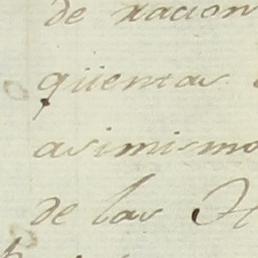 de racion
qüentas
asimismo
de las H